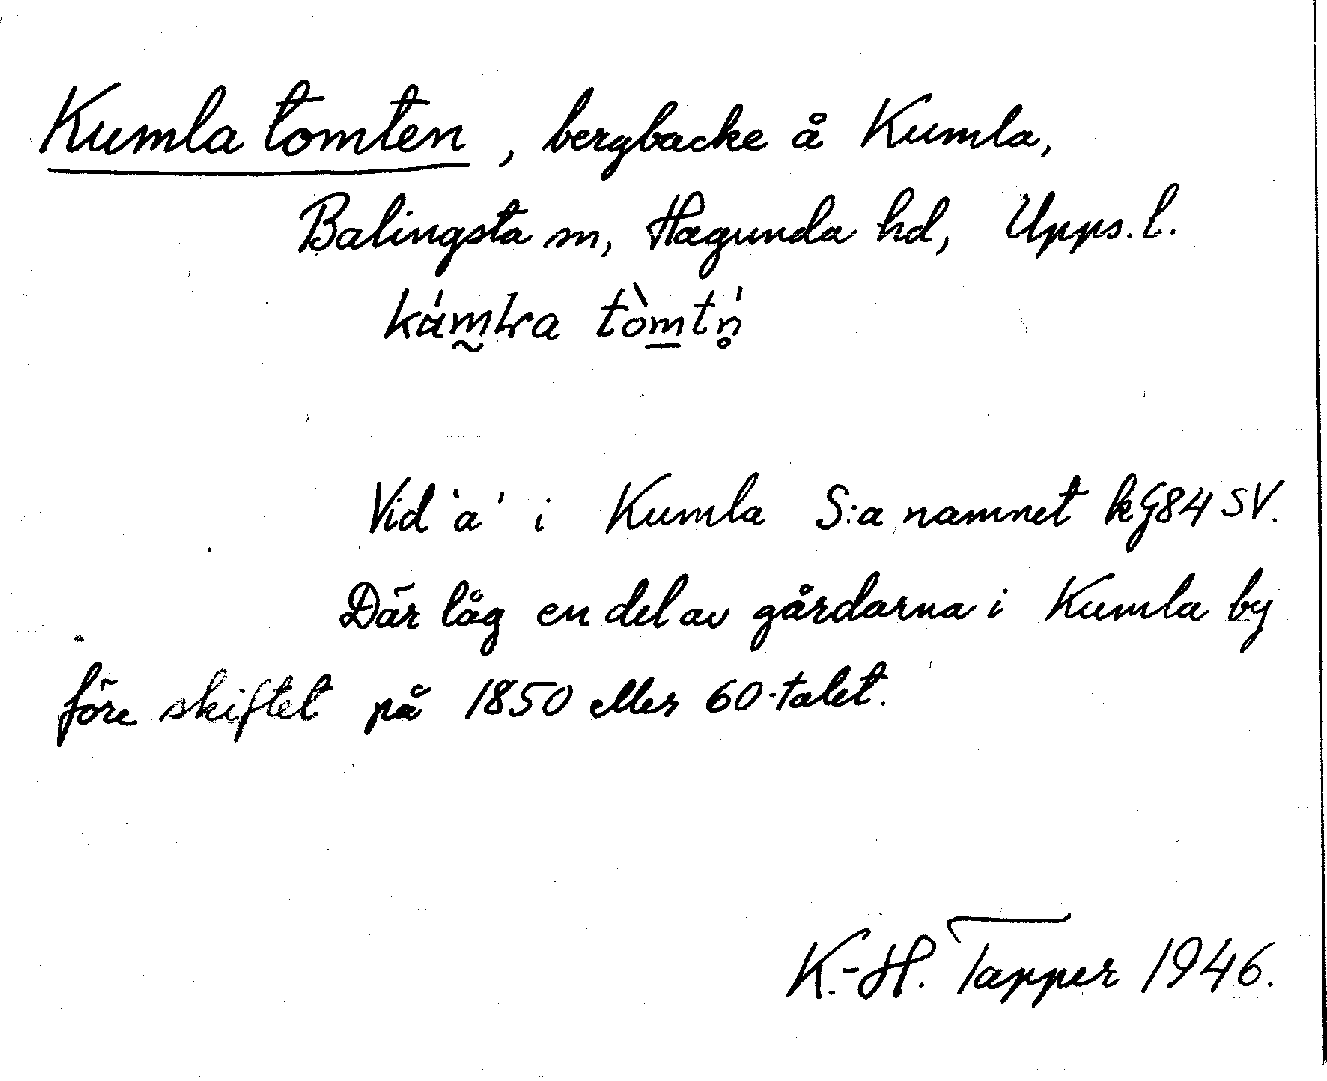 Kumla tomten, bergbacke å Kumla,
Balingsta sn, Hagunda hd, Upps. l.
kámla tòmtṇ́
Vid 'a' i Kumla S:a namnet kG84 SV.
Där låg en del av gårdarna i Kumla by
före skiftet på 1850 eller 60-talet.
K.-H. Tapper 1946.